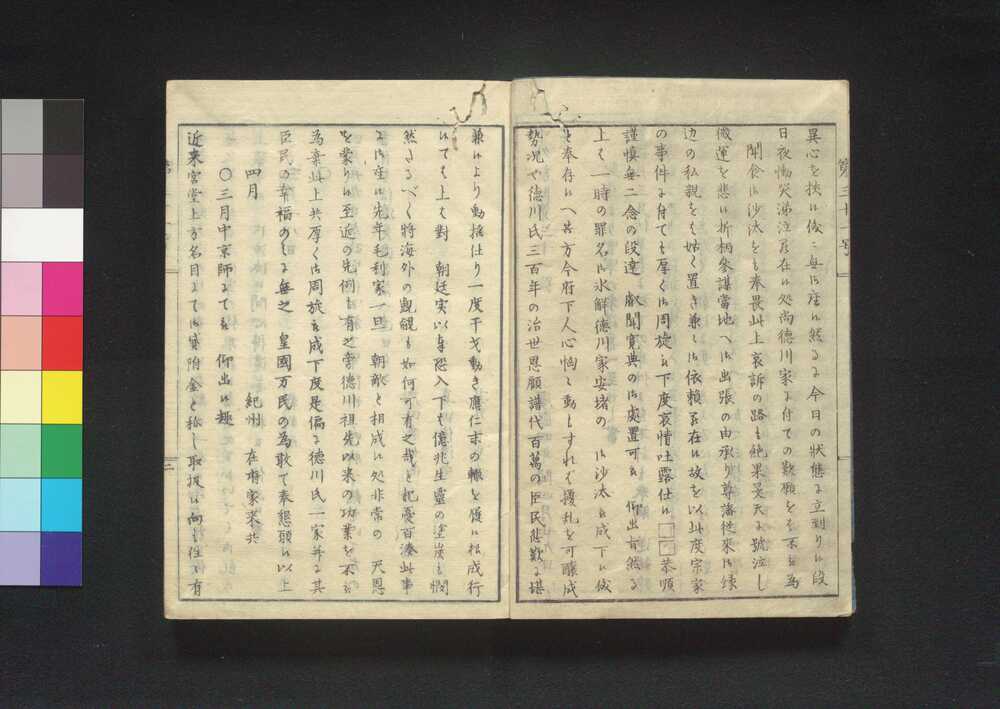 異心を挟候儀ハ無御座候然る今日の状態に立到り候段
日夜慟哭涕泣罷在候処尚徳川家に付ての歎願をも不相為
聞食候御沙汰をも奉畏此上哀訴の路も絶果旻天に號泣し
微運を悲候折柄參謀當地へ御出張の由承り尊藩従来御縁
辺の私親をも姑く置き兼々御依頼罷在候故を以此度宗家
の事件に付ても厚く御周旋被下度哀情吐露仕候□□恭順
謹慎無二念の段達 叡聞寛典の御處置可被 仰出旨然る
上ハ一時の罪名御氷解徳川家安堵の 御沙汰被成下候儀
と奉存候へ共方今府下人心恟々動もすれバ擾乱を可醸成
勢况や徳川氏三百年の治世恩顧譜代百萬の臣民悲歎に堪
兼候より動揺仕り一度干戈動き應仁末の轍を履候様成行
候ても上ハ對 朝廷実以奉恐入下も億兆生靈の塗炭を憫
然するべく將海外の覬覦も如何可有之哉と杞憂百湊此事
に御座候先年毛利家一旦 朝敵と相成候処非常の 天恩
を蒙り候至近の先例も有之常徳川祖先以来の功業を不被
為棄此上共厚く御周旋被成下度是偏に徳川氏一家并に其
臣民の幸福のミに無之 皇國万民の為敢て奉懇願候以上
四月 紀州 在府家来共
〇三月中京師にて被 仰出候趣
近来宮堂上方名目にて御貸附金と称し取扱候向も往々有
第三十一号
二